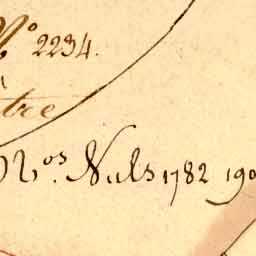 N° 2234.
tre
N.os Nuls 1782 190